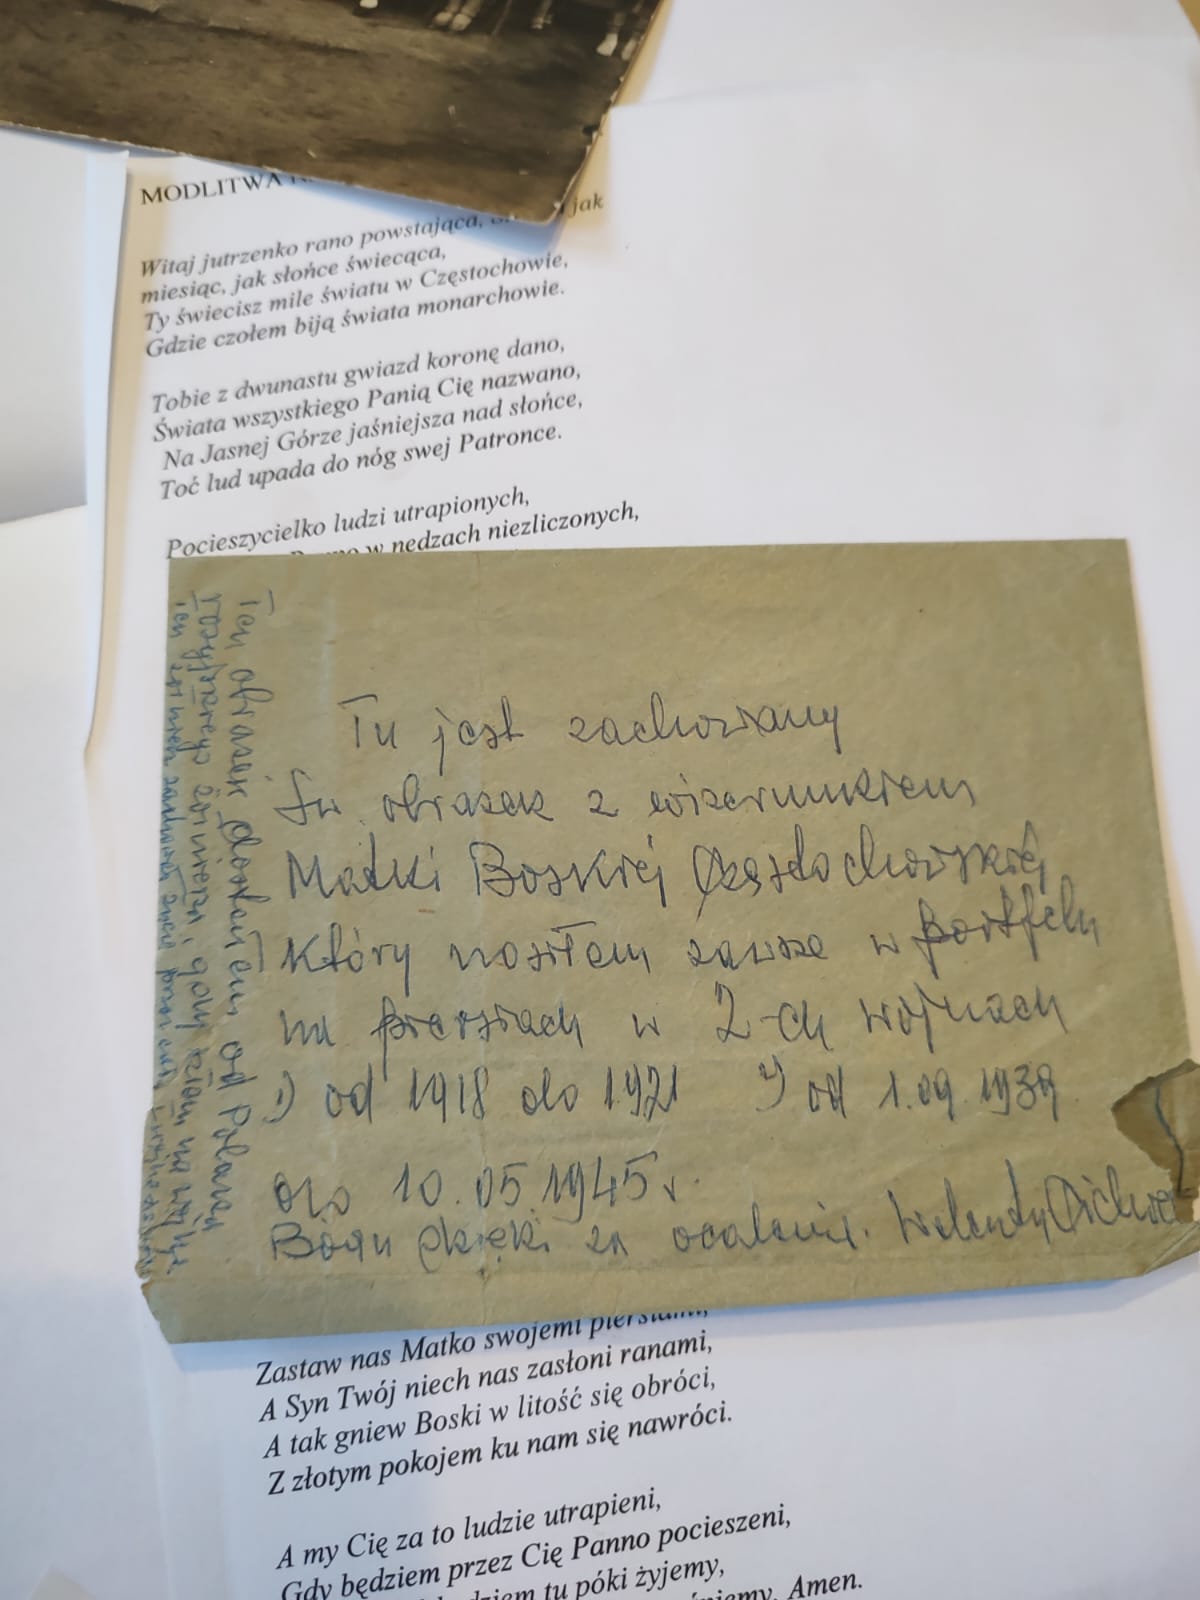 MODLITWA
jak
Witaj jutrzenko rano powstająca,
miesiąc, jak słońce świecąca,
Ty świecisz mile światu w Częstochowie,
Gdzie czołem biją świata monarchowie.
Tobie z dwunastu gwiazd koronę dano,
Świata wszystkiego Panią Cię nazwano,
Na Jasnej Górze jaśniejsza nad słońce,
Toć lud upada do nóg swej Patronce.
Pocieszycielko ludzi utrapionych,
w nędzach niezliczonych,
Tu jest zachowany
Św. obrazek z wizerunkiem
Matki Boskiej Częstochowskiej
który nosiłem zawsze w portfelu
na piersiach w 2-ch wojnach
1) od 1918 do 1921 2) od 1.09.1939
do 10.05.1945 r.
Bogu Dzięki za ocalenie. Walenty
Ten obrazek dostałem od Polaka
rosyjskiego żołnierza, gdy szłem na wojnę.
Ten żołnierz
Zastaw nas Matko swojemi piersiami,
A Syn Twój niech nas zasłoni ranami,
A tak gniew Boski w litość się obróci,
Z złotym pokojem ku nam się nawróci.
A my Cię za to ludzie utrapieni,
Gdy będziem przez Cię Panno pocieszeni,
tu póki żyjemy,
Amen.